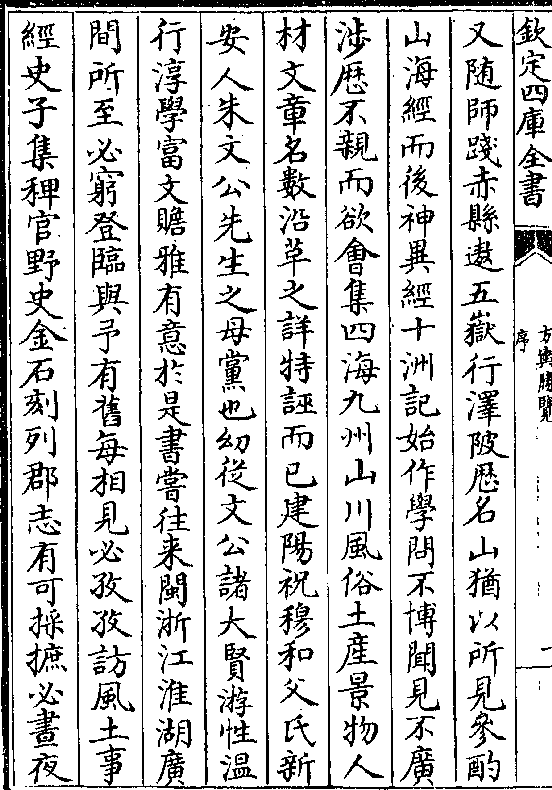 欽定四庫全書
方輿勝覽
序
又随師踐赤縣遨五嶽行澤陂歴名山猶以所見參酌
山海經而後神異經十洲記始作學問不博聞見不廣
渉歴不親而欲會集四海九州山川風俗土産景物人
材文章名數沿革之詳特誣而已建陽祝穆和父氏新
安人朱文公先生之母黨也幼從文公諸大賢游性温
行淳學富文贍雅有意於是書嘗往来閩浙江淮湖廣
間所至必窮登臨與予有舊每相見必孜孜訪風土事
經史子集稗官野史金石刻列郡志有可採摭必晝夜